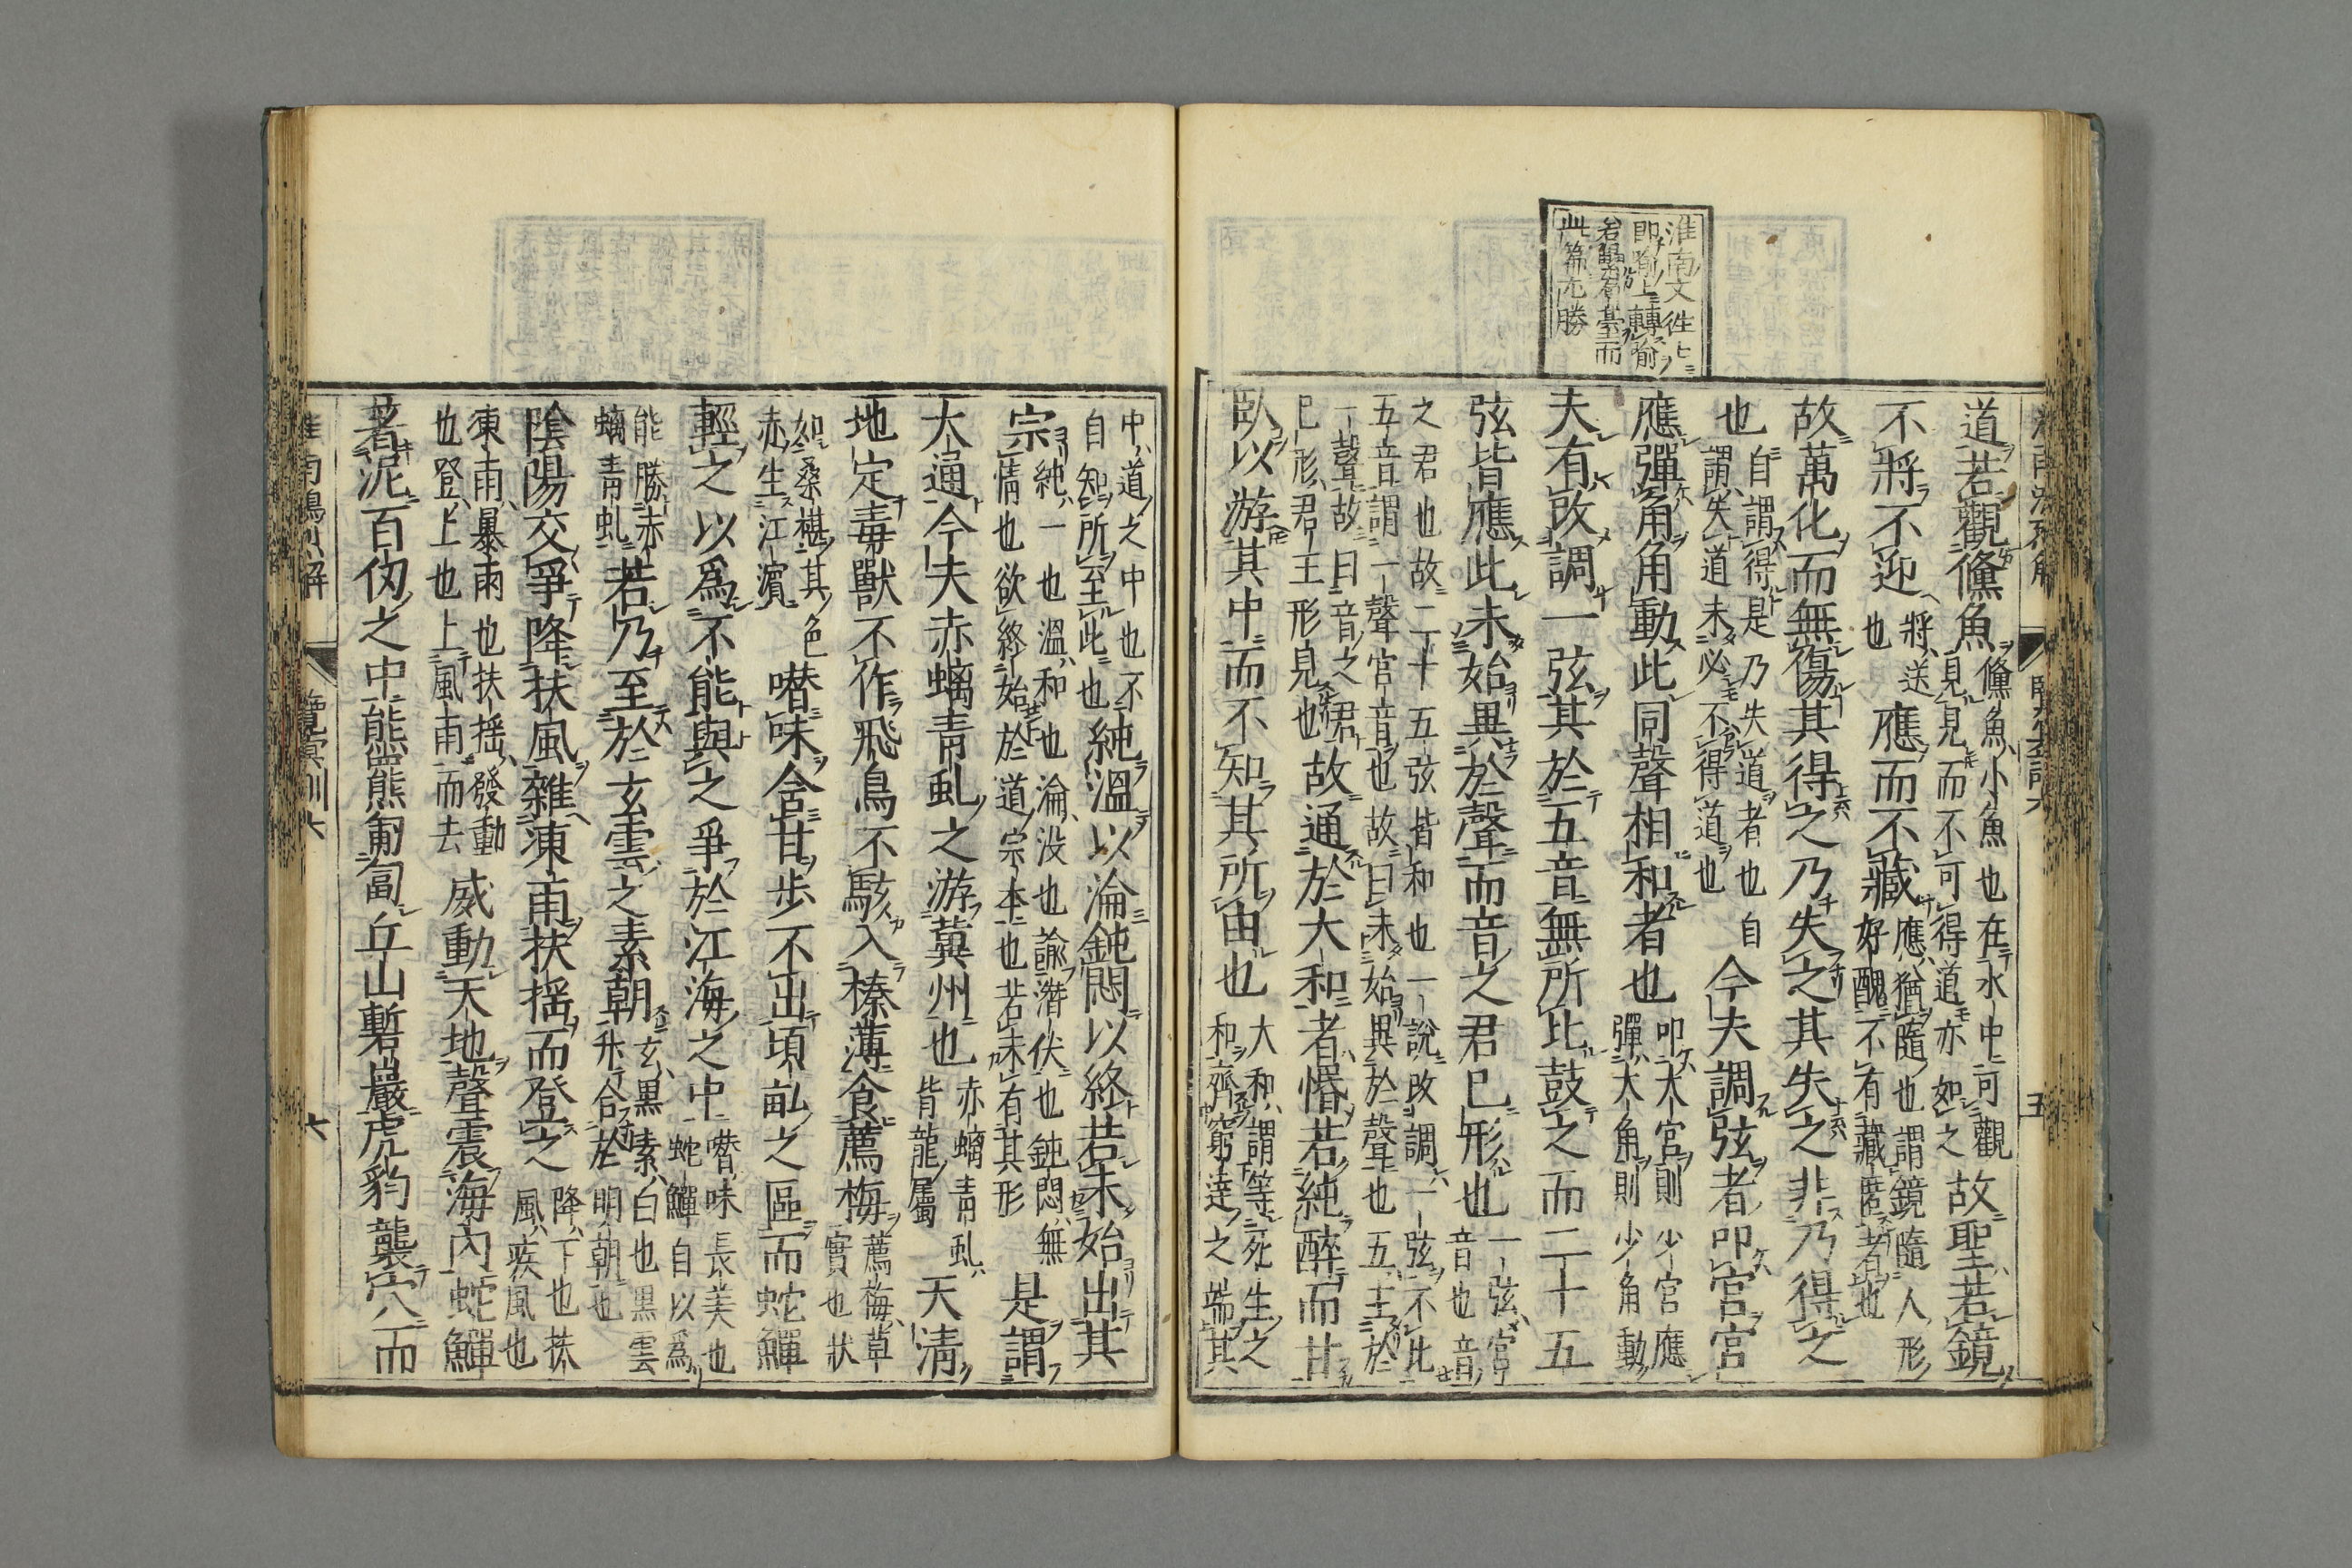 淮南鴻烈解 覽冥訓六 五
淮南文往〻
即喻上轉喻
而
此篇尤勝
道若觀鯈魚
鯈魚小魚也在水中可觀
見見而不可得道亦如之
故聖若鏡
不將不迎
將送
也
應而不藏
應猶隨也謂鏡隨人形
好醜不有藏匿者也
故萬化而無傷其得之乃失之其失之非乃得之
也
自謂得是乃失道者也自
謂失道未必不得道也
今夫調弦者叩宮宮
應彈角角動此同聲相和者也
叩大宮則少宮應
彈大角則少角動
夫有改調一弦其於五音無所比鼓之而二十五
弦皆應此未始異於聲而音之君已形也
一弦宮
音也音
之君也故二十五弦皆和也一說改調一弦不比
五音謂一聲宮音也故曰未始異於聲也五王於
一聲故曰音之君
已形君王形見也
故通於大和者惛若純醉而甘
臥以游其中而不知其所由也
大和謂等死生之
和齊窮達之端其
中道之中也不
自知所至此也
純溫以淪鈍悶以終若未始出其
宗
純一也溫和也淪没也諭潛伏也鈍悶無
情也欲終始於道宗本也若未有其形
是謂
大通今夫赤螭青虬之游冀州也
赤螭青虬
皆龍屬
天清
地定毒獸不作飛鳥不駭入榛薄食薦梅
薦梅草
實也狀
如桑椹其色
赤生江濱
噆味含甘步不出頃畝之區而蛇鱓
輕之以爲不能與之爭於江海之中
噆味長美也
蛇鱓自以爲
能勝赤
螭青虬
若乃至於玄雲之素朝
玄黑素白也黑雲
升合於明朝也
陰陽交爭降扶風雜凍雨扶搖而登之
降下也扶
風疾風也
凍雨暴雨也扶搖發動
也登上也上風雨而去
威動天地聲震海內蛇鱓
著泥百仞之中熊羆匍匐丘山磛巖虎豹襲穴而
淮南鴻烈解 覽冥訓六 六